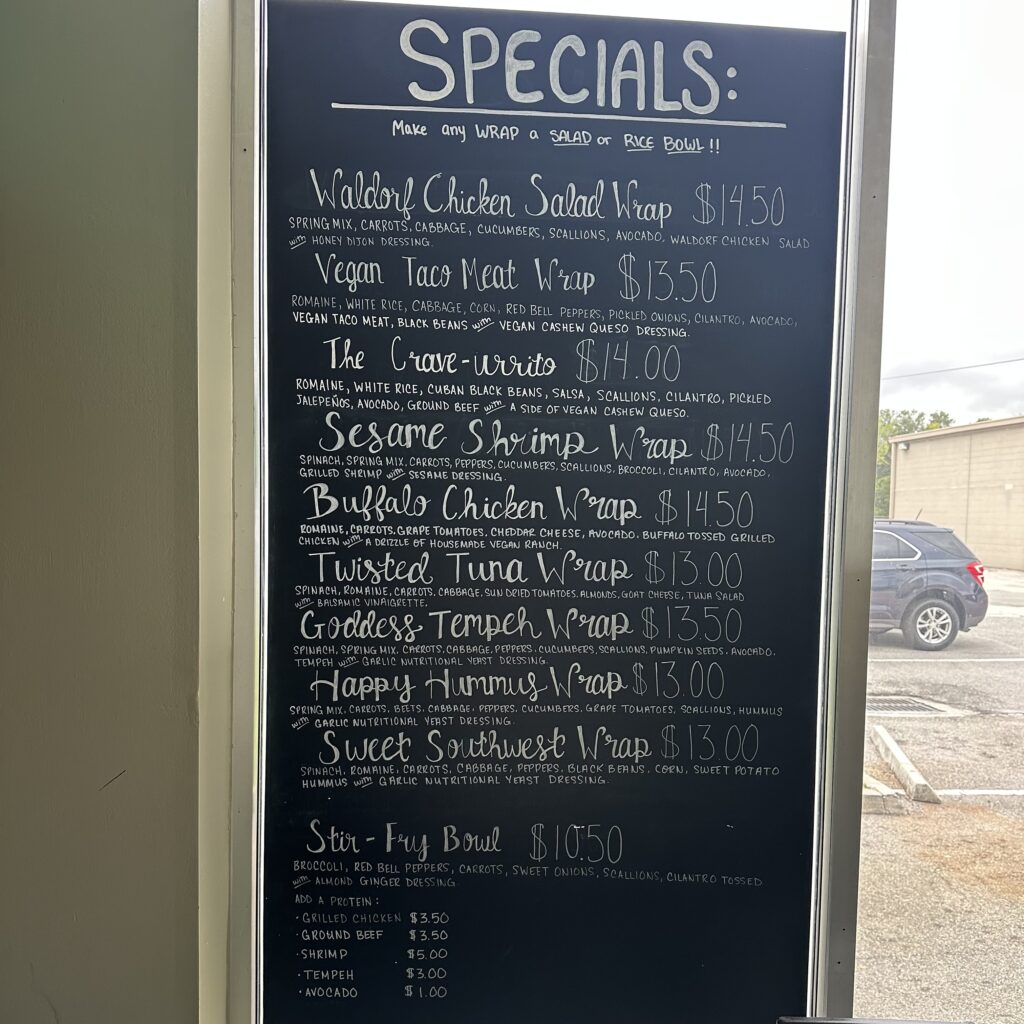 SPECIALS:
Make any WRAP a SALAD or RICE BOWL!!
Waldorf Chicken Salad Wrap $14.50
SPRING MIX, CARROTS, CABBAGE, CUCUMBERS, SCALLIONS, AVOCADO, WALDORF CHICKEN SALAD
with HONEY DIJON DRESSING.
Vegan Taco Meat Wrap $13.50
ROMAINE, WHITE RICE, CABBAGE, CORN, RED BELL PEPPERS, PICKLED ONIONS, CILANTRO, AVOCADO,
VEGAN TACO MEAT, BLACK BEANS with VEGAN CASHEW QUESO DRESSING.
The Crave-urrito $14.00
ROMAINE, WHITE RICE, CUBAN BLACK BEANS, SALSA, SCALLIONS, CILANTRO, PICKLED
JALEPEÑOS, AVOCADO, GROUND BEEF with A SIDE OF VEGAN CASHEW QUESO.
Sesame Shrimp Wrap $14.50
SPINACH, SPRING MIX, CARROTS, PEPPERS, CUCUMBERS, SCALLIONS, BROCCOLI, CILANTRO, AVOCADO,
GRILLED SHRIMP with SESAME DRESSING.
Buffalo Chicken Wrap $14.50
ROMAINE, CARROTS, GRAPE TOMATOES, CHEDDAR CHEESE, AVOCADO, BUFFALO TOSSED GRILLED
CHICKEN with A DRIZZLE OF HOUSEMADE VEGAN RANCH.
Twisted Tuna Wrap $13.00
SPINACH, ROMAINE, CARROTS, CABBAGE, SUN DRIED TOMATOES, ALMONDS, GOAT CHEESE, TUNA SALAD
with BALSAMIC VINAIGRETTE.
Goddess Tempeh Wrap $13.50
SPINACH, SPRING MIX, CARROTS, CABBAGE, PEPPERS, CUCUMBERS, SCALLIONS, PUMPKIN SEEDS, AVOCADO,
TEMPEH with GARLIC NUTRITIONAL YEAST DRESSING.
Happy Hummus Wrap $13.00
SPRING MIX, CARROTS, BEETS, CABBAGE, PEPPERS, CUCUMBERS, GRAPE TOMATOES, SCALLIONS, HUMMUS
with GARLIC NUTRITIONAL YEAST DRESSING.
Sweet Southwest Wrap $13.00
SPINACH, ROMAINE, CARROTS, CABBAGE, PEPPERS, BLACK BEANS, CORN, SWEET POTATO
HUMMUS with GARLIC NUTRITIONAL YEAST DRESSING.
Stir-Fry Bowl $10.50
BROCCOLI, RED BELL PEPPERS, CARROTS, SWEET ONIONS, SCALLIONS, CILANTRO TOSSED
with ALMOND GINGER DRESSING.
ADD A PROTEIN:
· GRILLED CHICKEN $3.50
· GROUND BEEF $3.50
· SHRIMP $5.00
· TEMPEH $3.00
· AVOCADO $1.00